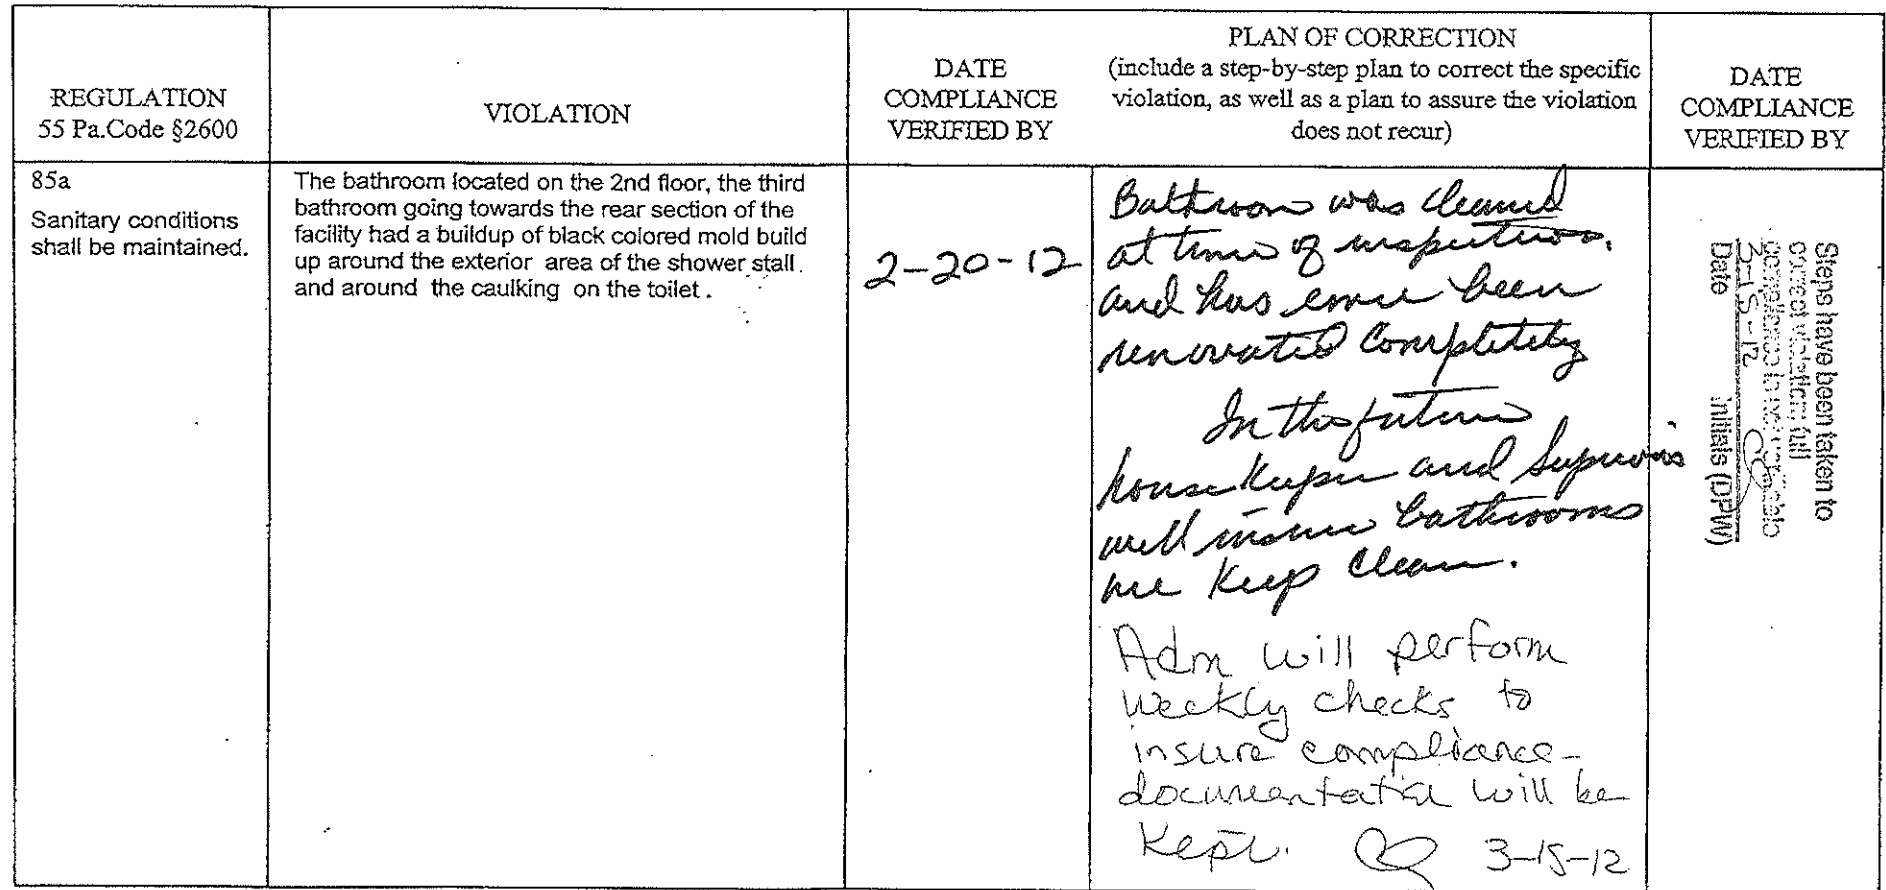 REGULATION
55 Pa.Code §2600
VIOLATION
DATE
COMPLIANCE
VERIFIED BY
PLAN OF CORRECTION
(include a step-by-step plan to correct the specific
violation, as well as a plan to assure the violation
does not recur)
DATE
COMPLIANCE
VERIFIED BY
85a
Sanitary conditions
shall be maintained.
The bathroom located on the 2nd floor, the third
bathroom going towards the rear section of the
facility had a buildup of black colored mold build
up around the exterior area of the shower stall.
and around the caulking on the toilet.
2-20-12
Bathroom was cleaned
at time of inspection.
and has since been
renovated Completely
In the future
house keeper and Supervis
will insure bathrooms
are Keep Clean.
Adm will perform
weekly checks to
insure compliance-
documentation will be
Kept. 3-15-12
Steps have been taken to
correct violation; full
compliance is not
3-15-12
Date Initials (DPW)